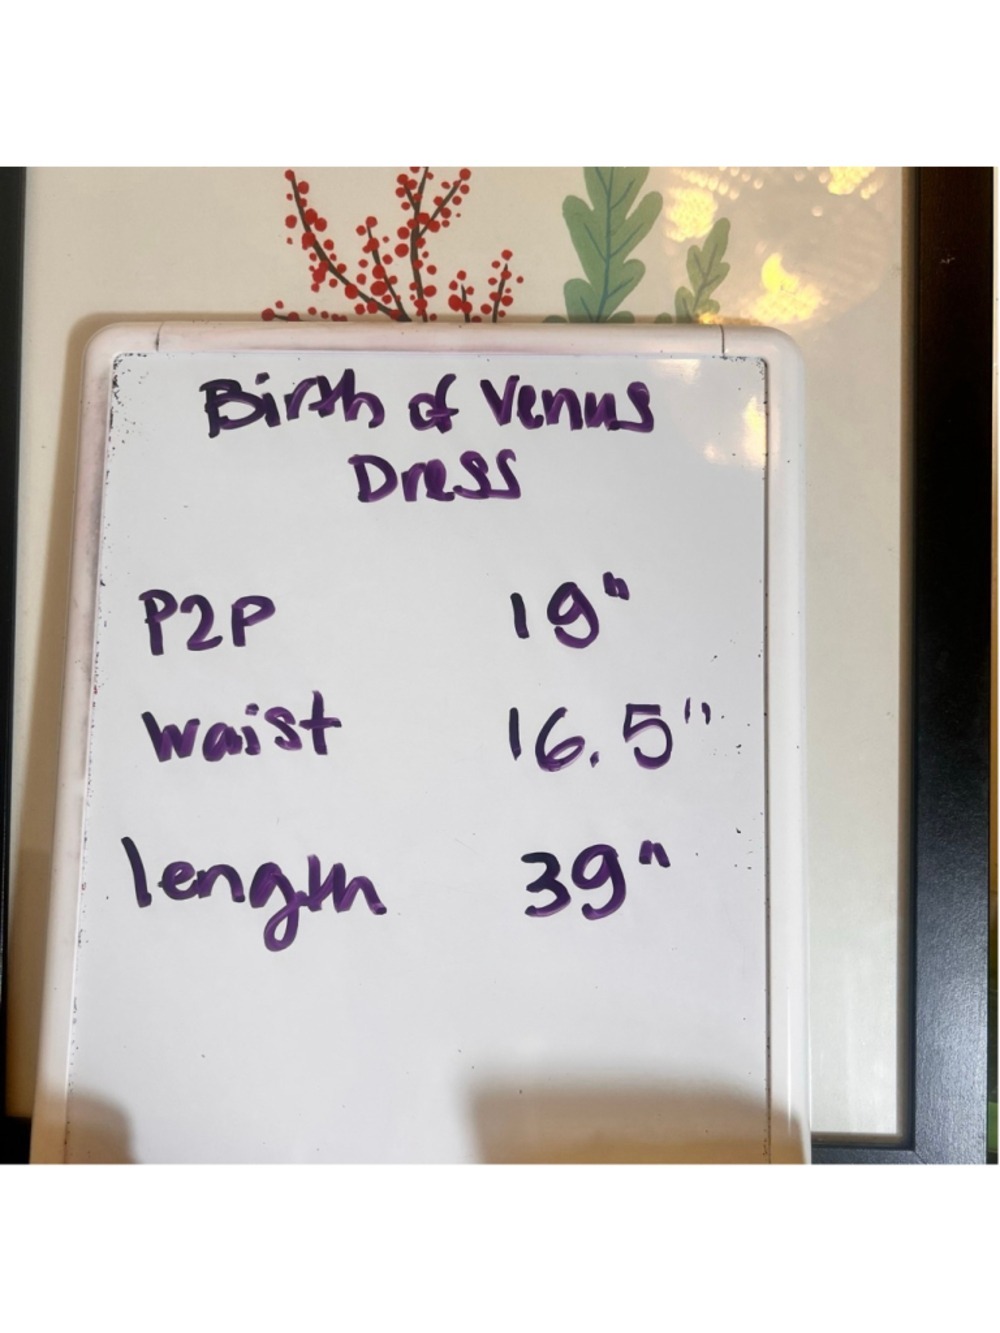 Birth of Venus
Dress
P2P 19"
waist 16.5"
length 39"